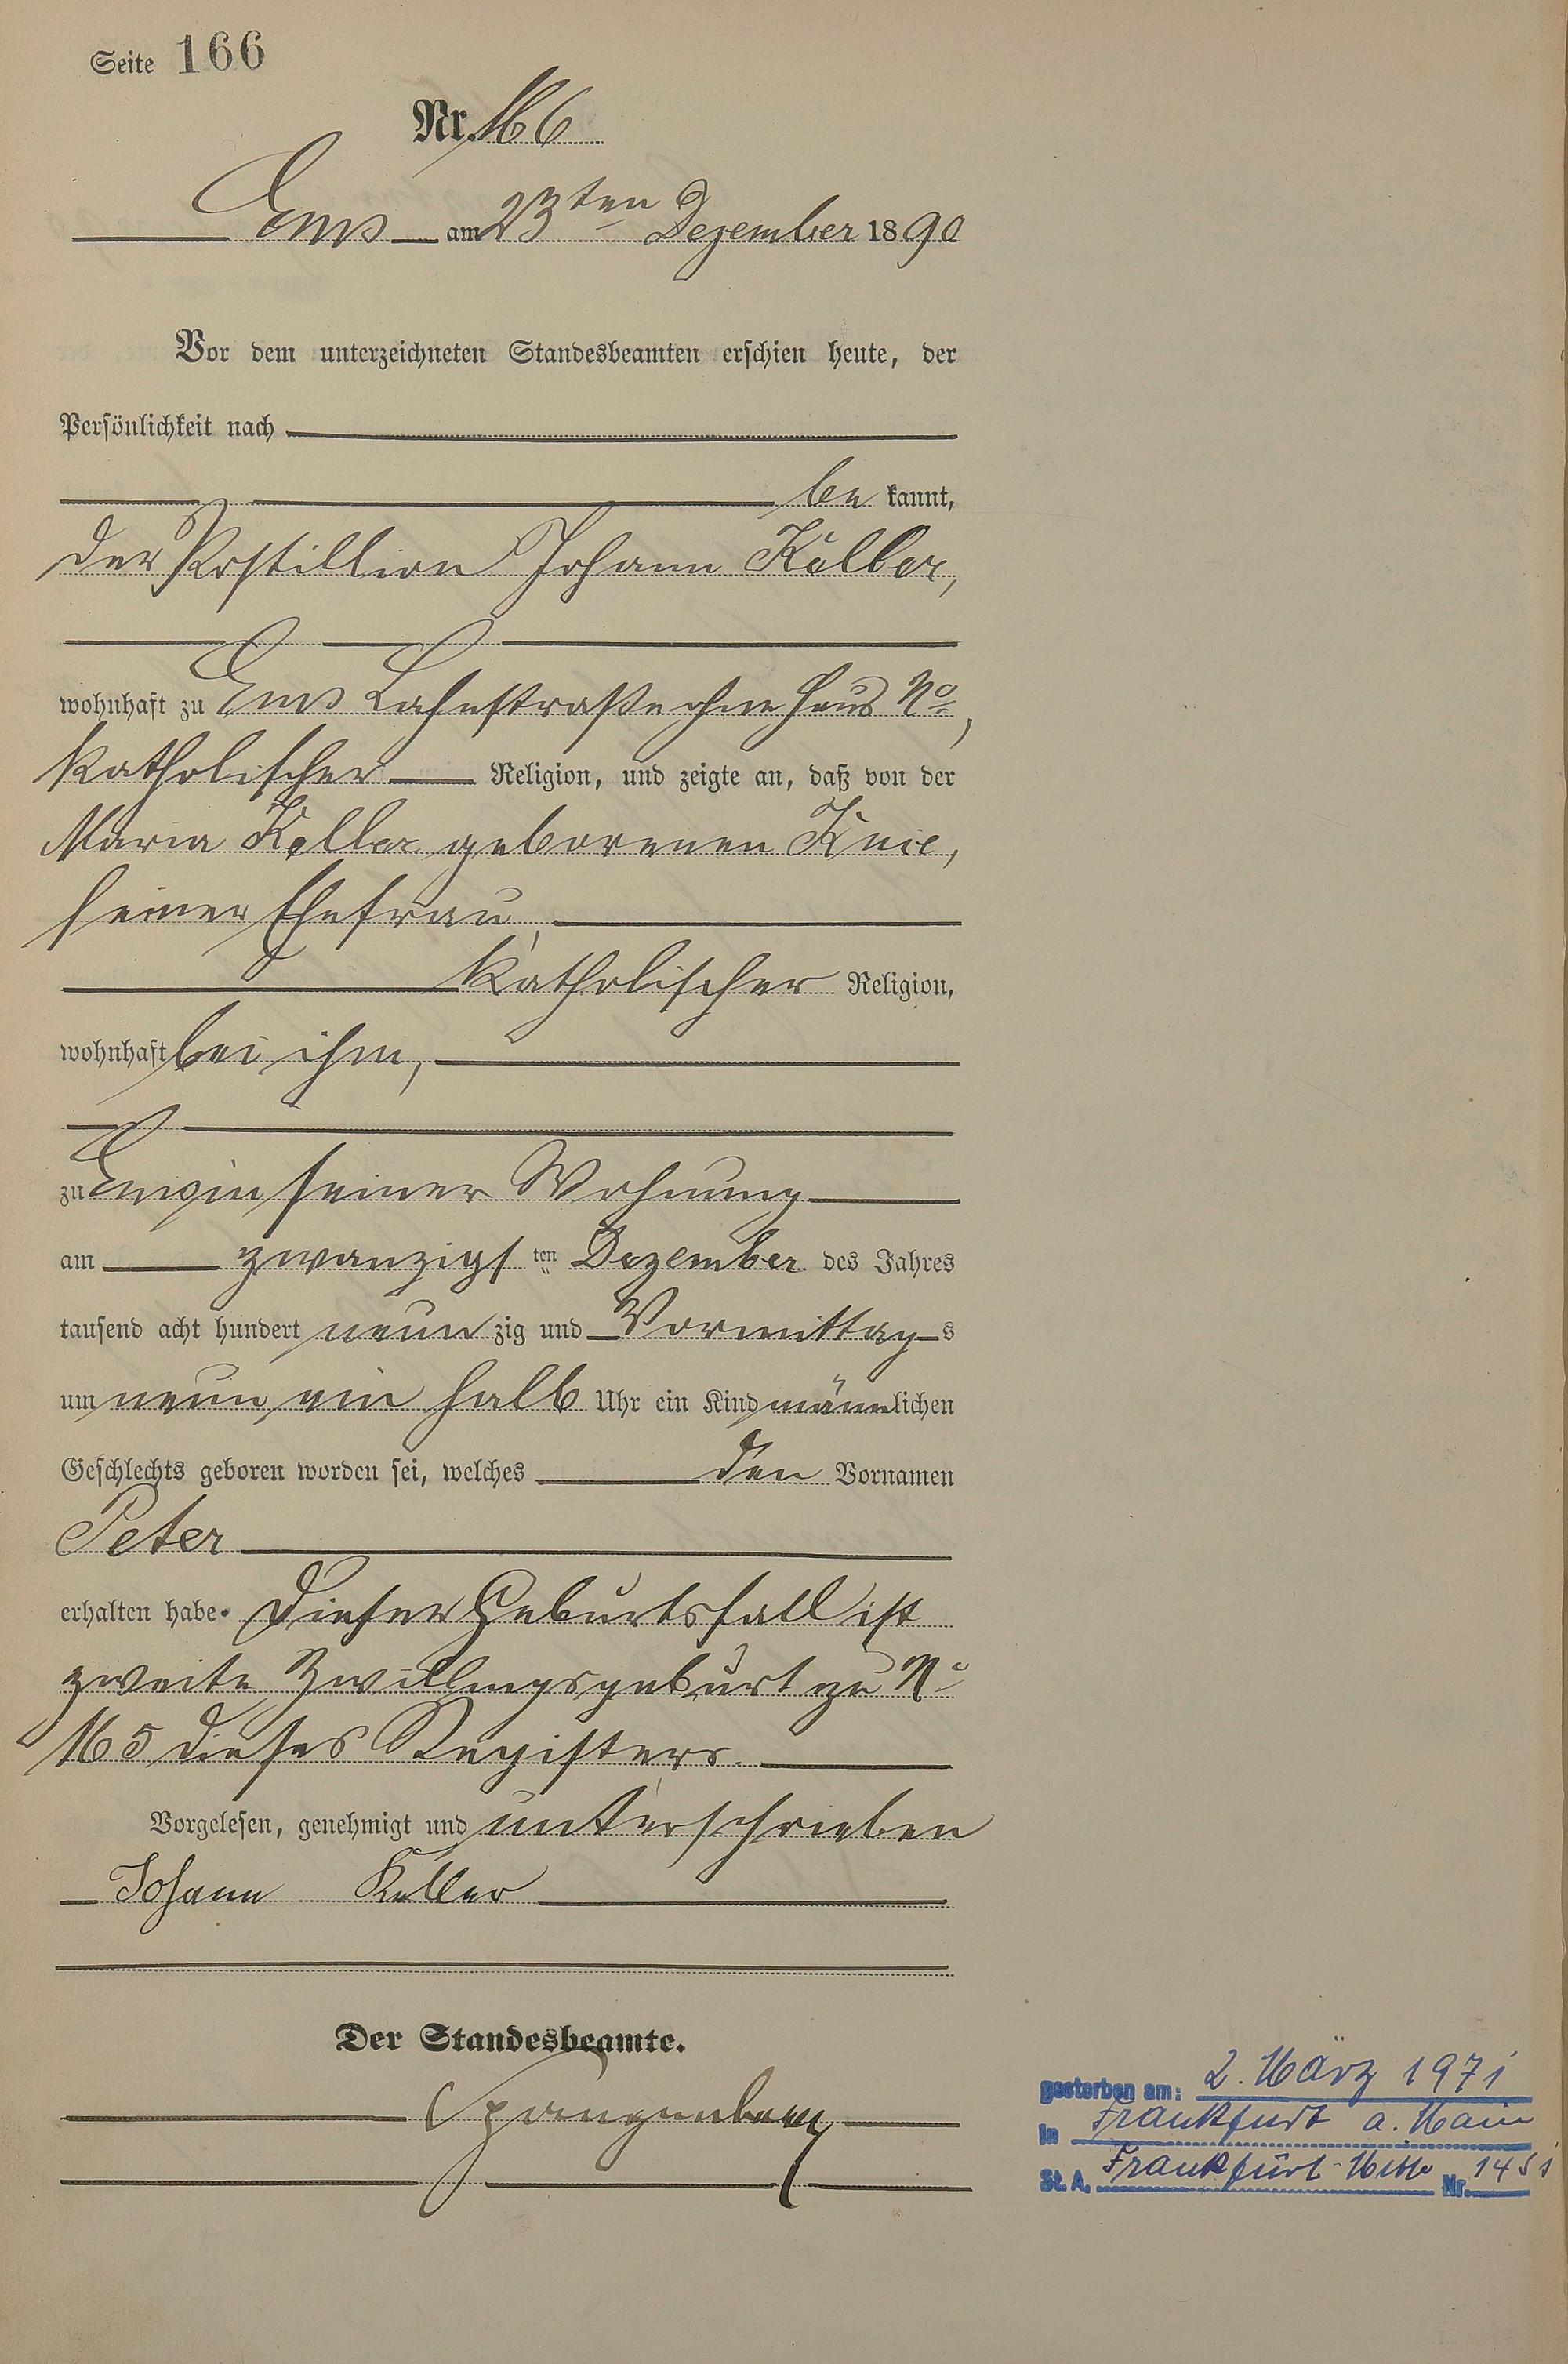 Seite 166
Nr. 166
Ems am 23ten Dezember 1890
Vor dem unterzeichneten Standesbeamten erschien heute, der
Persönlichkeit nach
be kannt,
der Postillion Johann Keller,
wohnhaft zu Ems Lahnstraße ohne Haus No,
katholischer Religion, und zeigte an, daß von der
Maria Keller geborenen Knie,
seiner Ehefrau,
katholischer Religion,
wohnhaft bei ihm,
zu Ems in seiner Wohnung
am zwanzigsten Dezember des Jahres
tausend acht hundert neunzig und Vormittags
um neun ein halb Uhr ein Kind männlichen
Geschlechts geboren worden sei, welches den Vornamen
Peter
erhalten habe. Dieser Geburtsfall ist
zweite Zwillingsgeburt zu No
165 dieses Registers.
Vorgelesen, genehmigt und unterschrieben
Johann Keller
Der Standesbeamte.
Spangenberg
gestorben am: 2. März 1971
in Frankfurt a. Main
St. A. Frankfurt-Mitte Nr. 1451